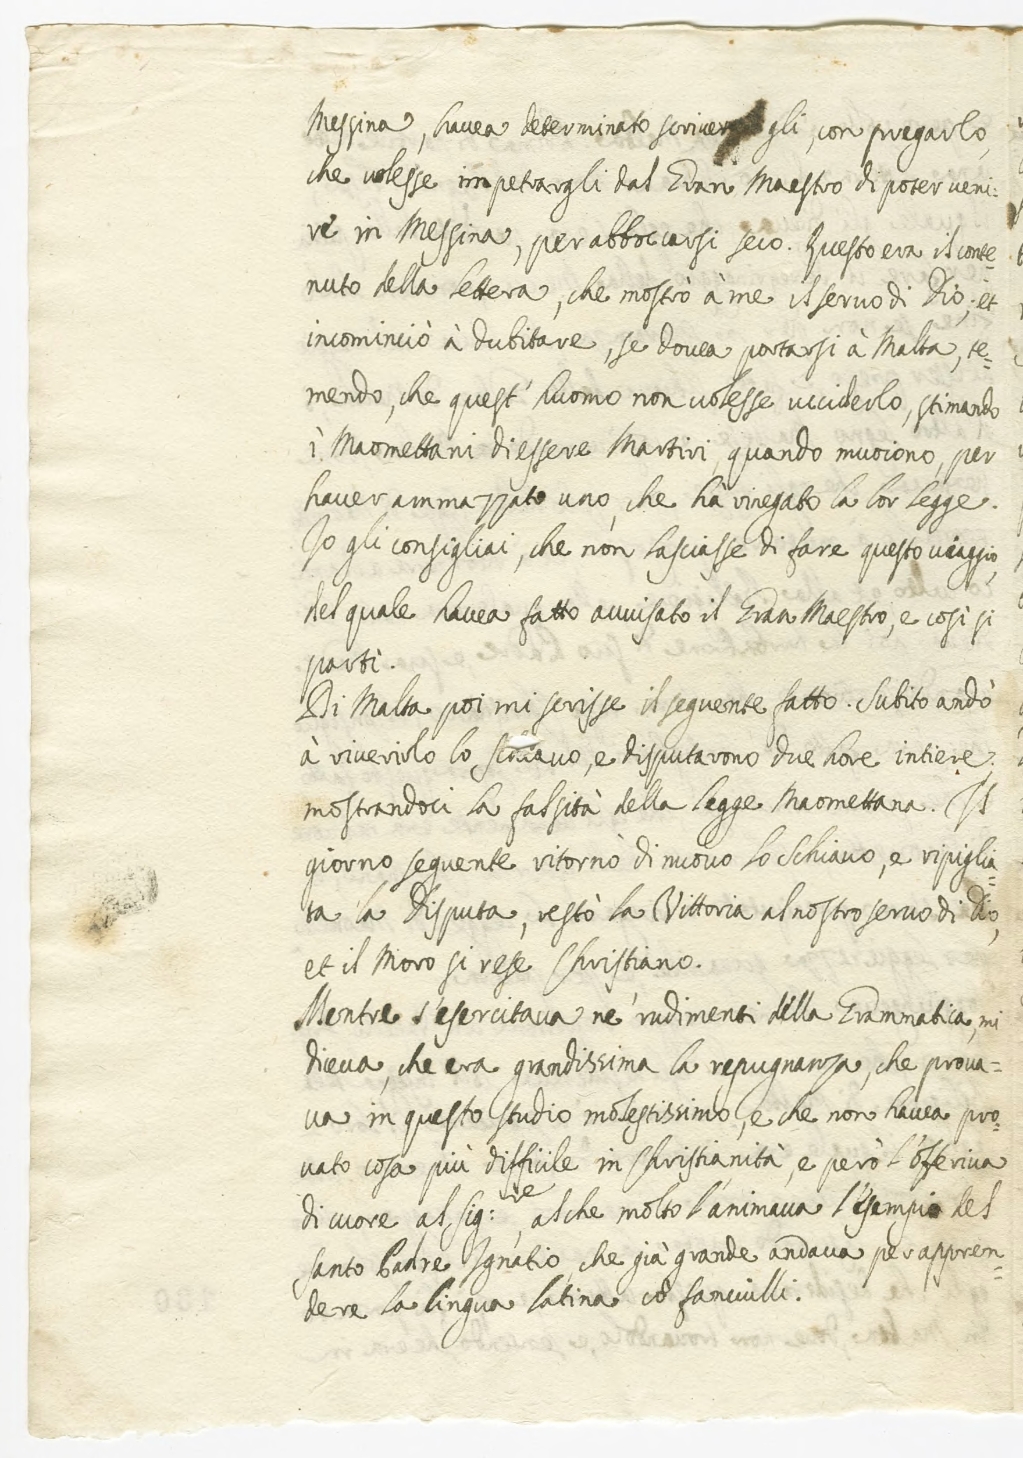 Messina, hauea determinato scriuergli, con pregarlo,
che uolesse impetrargli dal Gran Maestro di poter ueni:
re in Messina, per abboccarsi seco. Questo era il conte=
nuto della lettera, che mostrò à me il seruo di Dio, et
incominciò à dubitare, se douea portarsi à Malta, te=
mendo, che quest' huomo non uolesse ucciderlo, stimando
i Maomettani di essere Martiri, quando muoiono, per
hauer ammazzato uno, che hà rinegato la lor legge.
Io gli consigliai, che non lasciasse di fare questo uiaggio,
del quale hauea fatto auuisato il Gran Maestro, e così si
partì.
Di Malta poi mi scrisse il seguente fatto. Subito andò
à riuerirlo lo schiauo, e disputarono due hore intiere,
mostrandoci la falsità della legge Maomettana. Il
giorno seguente ritornò di nuouo lo Schiauo, e ripiglia=
ta la disputa, restò la Vittoria al nostro seruo di Dio,
et il Moro si rese Christiano.
Mentre s'esercitaua ne' rudimenti della Grammatica, mi
diceua, che era grandissima la repugnanza, che proua=
ua in questo studio molestissimo, e che non hauea pro=
uato cosa più difficile in Christianità, e però l'offeriua
di cuore al Sig:re, al che molto l'animaua l'esempio del
santo Padre Ignatio, che già grande andaua per appren=
dere la lingua latina co' fanciulli.